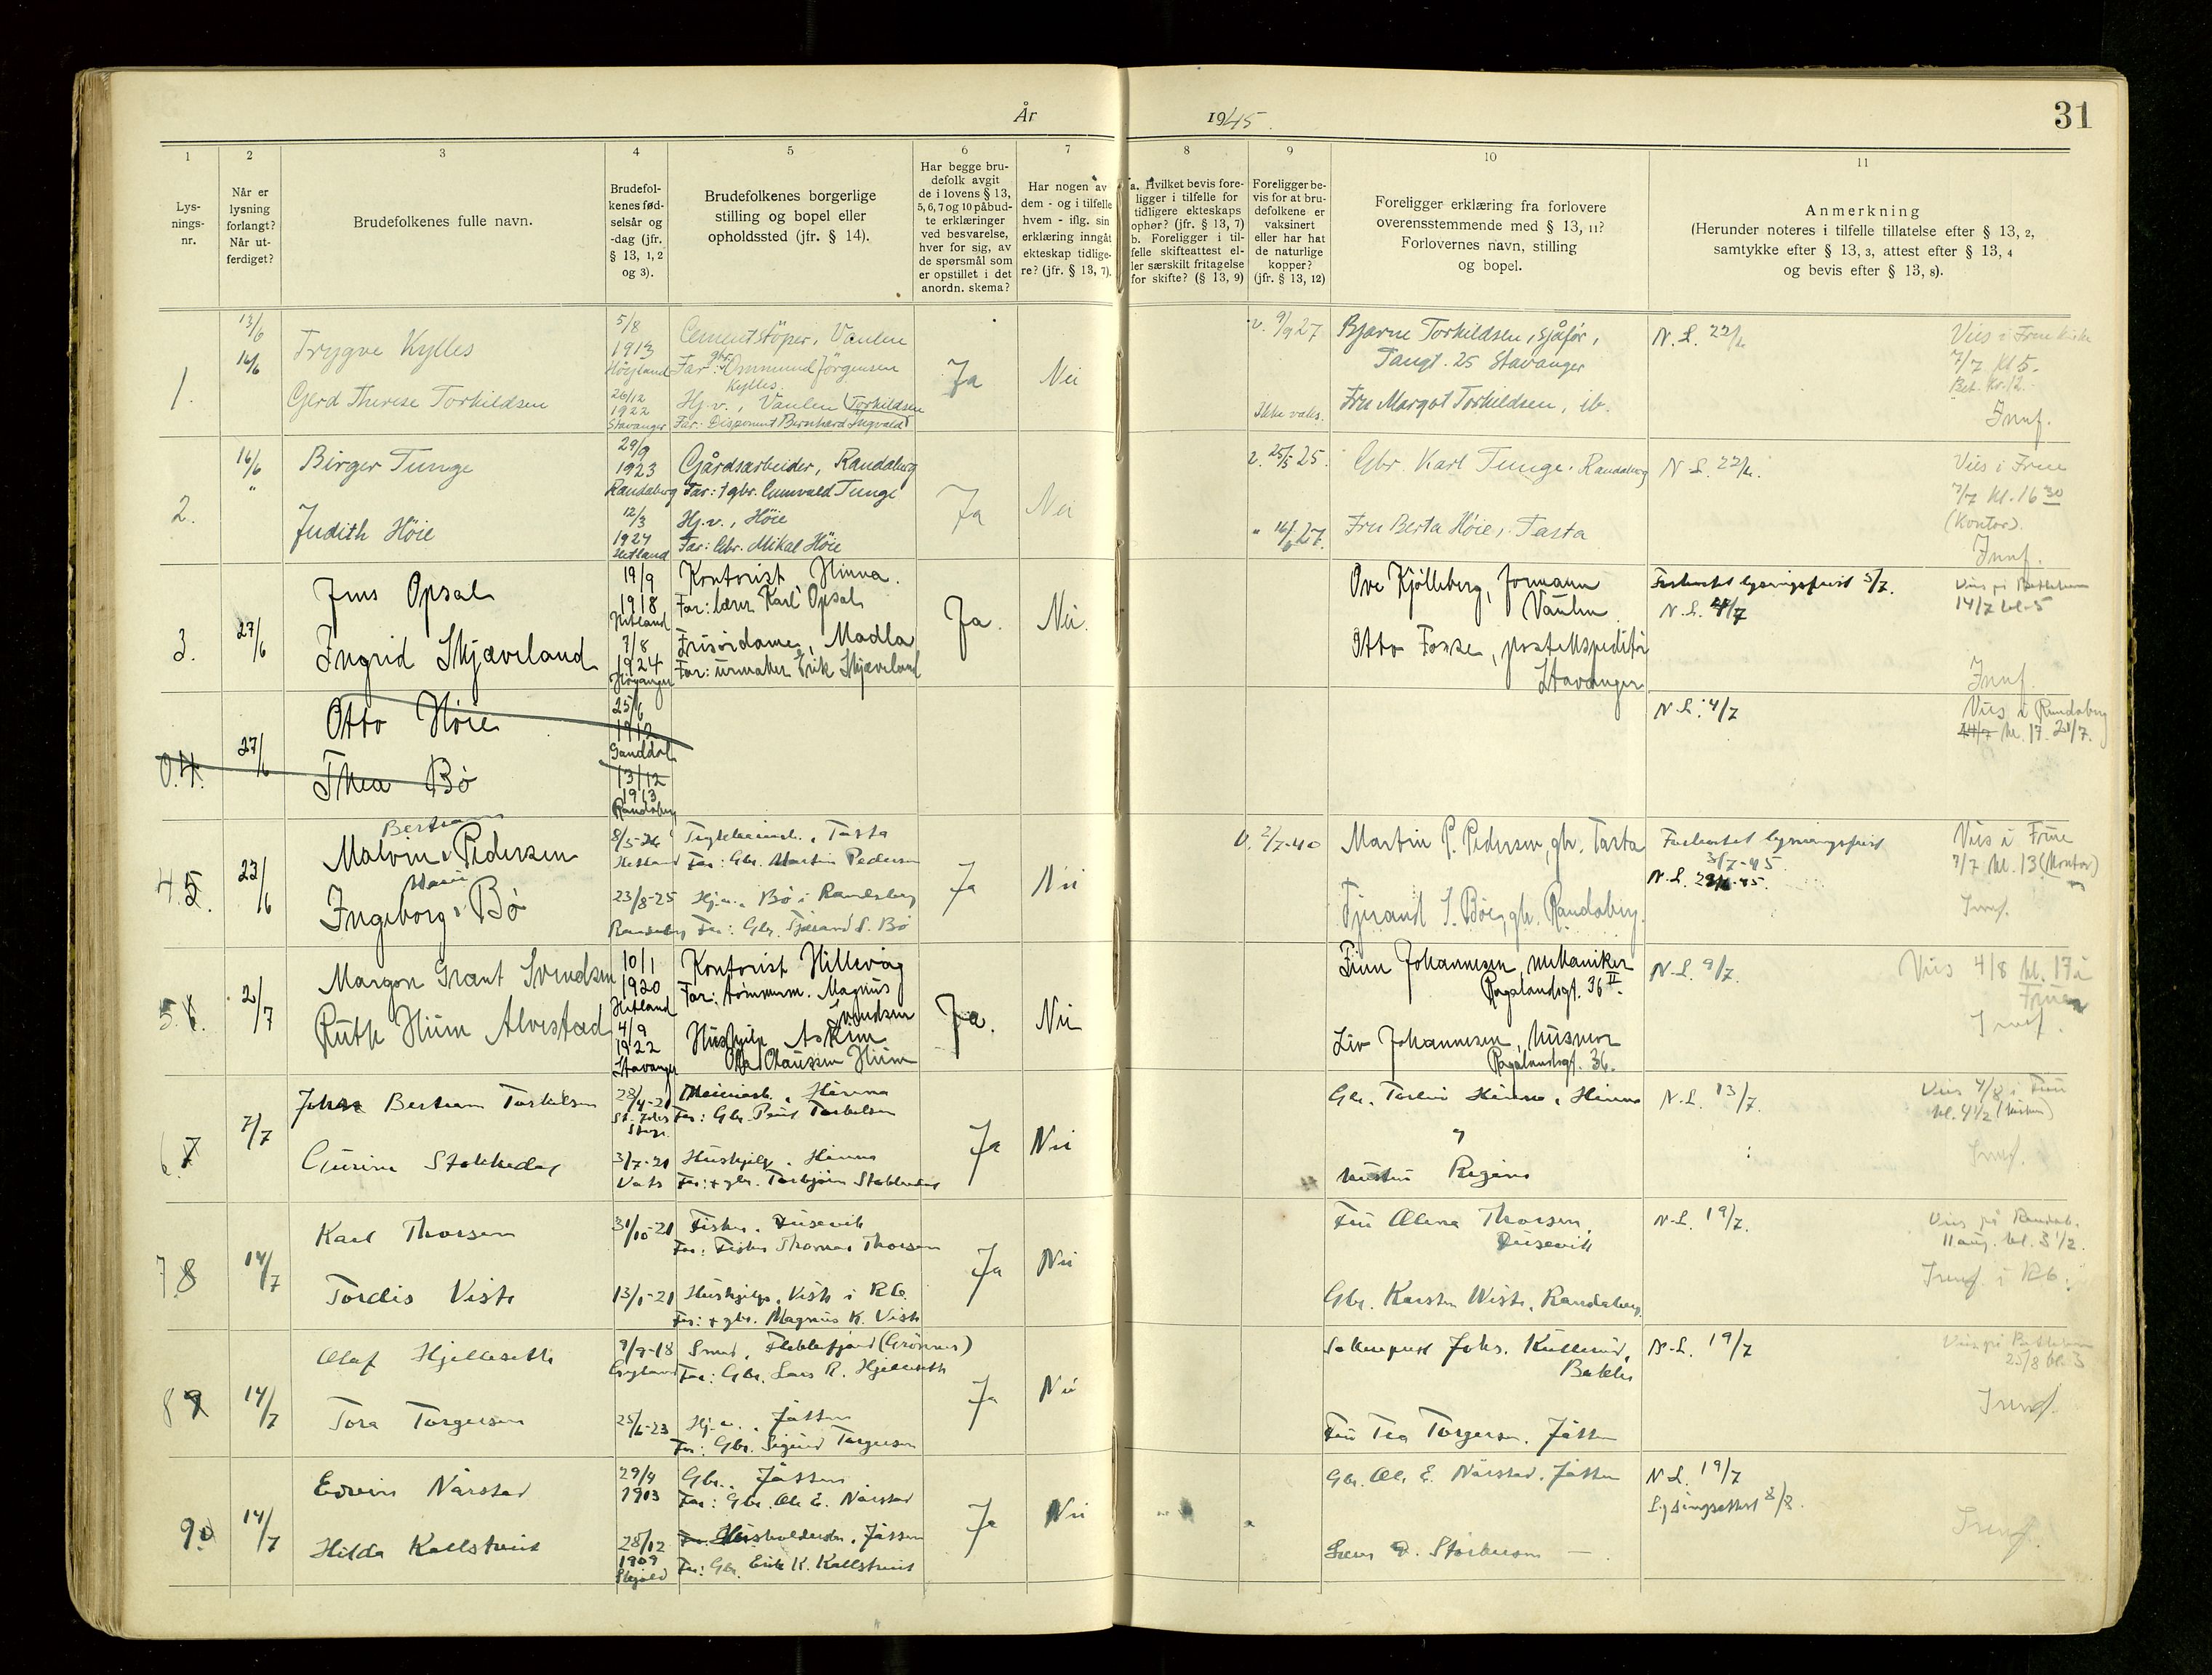 År 1945.
31
1
2
3
4
5
6
7
8
9
10
11
Lys-
nings-
nr.
Når er
lysning
forlangt?
Når ut-
ferdiget?
Brudefolkenes fulle navn.
Brudefol-
kenes fød-
selsår og
-dag (jfr.
§ 13, 1, 2
og 3).
Brudefolkenes borgerlige
stilling og bopel eller
opholdssted (jfr. § 14).
Har begge bru-
defolk avgit
de i lovens § 13,
5, 6, 7 og 10 påbud-
te erklæringer
ved besvarelse,
hver for sig, av
de spørsmål som
er opstillet i det
anordn. skema?
Har nogen av
dem - og i tilfelle
hvem - iflg. sin
erklæring inngåt
ekteskap tidlige-
re? (jfr. § 13, 7).
a. Hvilket bevis fore-
ligger i tilfelle for
tidligere ekteskaps
ophør? (jfr. § 13, 7)
b. Foreligger i til-
felle skifteattest el-
ler særskilt fritagelse
for skifte? (§ 13, 9)
Foreligger be-
vis for at bru-
defolkene er
vaksinert
eller har hat
de naturlige
kopper?
(jfr. § 13, 12)
Foreligger erklæring fra forlovere
overensstemmende med § 13, 11?
Forlovernes navn, stilling
og bopel.
Anmerkning
(Herunder noteres i tilfelle tillatelse efter § 13, 2,
samtykke efter § 13, 3, attest efter § 13, 4
og bevis efter § 13, 8).
1.
13/6
16/6
Trygve Kylles
5/8
1913
Høyland
Cementstöper, Vaulen
Far: gbr. Ommund Jörgensen
Kylles
Gerd Therese Torkildsen
26/12
1922
Stavanger
Hj.v., Vaulen (Torkildsen
Far: Disponent Bernhard Ingvald
Ja
Nei
v. 9/9 27
Ikke vaks.
Bjarne Torkildsen, sjåfør,
Tangt. 25 Stavanger
Fru Margot Torkildsen, ib.
N.L. 22/6.
Vies i Fruekirke
7/7 kl 5.
Bet. kr. 12.
Innf.
2.
16/6
"
Birger Tunge
29/9
1923
Randaberg
Gårdsarbeider, Randaberg
Far: † gbr. Gunvald Tunge
Judith Höie
12/3
1924
Hetland
Hj.v., Höie
Far: Gbr. Mikal Höie
Ja
Nei
v. 25/5 25.
" 16/6 27.
Gbr. Karl Tunge, Randaberg
Fru Berta Höie, Tasta
N.L. 22/6.
Vies i Frue
7/7 kl. 16 30
(Kontor).
Innf.
3.
27/6
Jens Opsal
19/9
1918
Hetland
Kontorist, Hinna.
Far: lærer Karl Opsal
Ingrid Skjæveland
7/8
1924
Höyanger
Frisördame, Madla
Far: urmaker Erik Skjæveland
Ja.
Nei.
Ove Kjölleberg, formann
Vaulen
Otto Fosse, postekspeditör
Stavanger
Forkortet lysningsfrist 5/7.
N.L. 4/7
Vies på Bethlehem
14/7 kl. 5
Innf.
0.4.
27/6
Otto Höie
25/6
1912
Ganddal
Thea Bö
13/12
1913
Randaberg
N.L. 4/7
Vies i Randaberg
14/7 kl. 17. 21/7.
4 5.
23/6
Bertram
Malvin Pedersen
8/5-26
Hetland
Far: Gbr. Martin Pedersen
Marie
Ingeborg Bö
23/8-25
Randaberg
Hj.v., Bö i Randaberg
Far: Gbr. Tjerand S. Bö
Ja
Nei
v. 2/7-40
Martin P. Pedersen, gbr. Tasta
Tjerand S. Böe, gb. Randaberg.
Forkortet lysningsfrist
3/7-45
N.L. 29/6-45.
Vies i Frue
7/7 kl. 13 (Kontor)
Innf.
5. 6.
2/7
Margon Grant Svendsen
10/1
1920
Hetland
Kontorist Hillevåg
Far: tömmerm. Magnus
Svendsen
Ruth Hium Alvestad
4/9
1922
Stavanger
Hushjelp Askim
Ola Olaussen Hium
Ja.
Nei
Finn Johannesen, mekaniker
Rogalandsgt. 36 II.
Liv Johannesen, husmor
Rogalandsgt. 36.
N.L. 9/7.
Vies 4/8 kl. 17 i
Fruen
Innf.
6. 7
7/7
Johan Bertram Torkelsen
28/4-21
St. Johs
Stgr.
Meieriarb., Hinna
Far: Gbr. Peut Torkelsen
Gurine Stokkedal
3/7-21
Vats
Hushjelp, Hinna
Far: † gbr. Torbjörn Stokkedal
Ja
Nei
Gbr. Torleiv Hinna, Hinna
"
hustru Regine
N.L. 13/7.
Vies 4/8 i Frue
kl. 4 1/2 (kirken)
Innf.
7. 8
14/7
Karl Thorsen
31/10-21
Fisker, Dusevik
Far: Fisker Thomas Thorsen
Tordis Viste
13/1-21
Hushjelp, Viste i Rb.
Far: † gbr. Magnus K. Viste
Ja
Nei
Fru Olena Thorsen,
Dusevik
Gbr. Karsten Wiste, Randaberg
N.L. 19/7.
Vies på Randab.
11 aug. kl. 3 1/2.
Innf. i Rb.
8 9
14/7
Olaf Hjelleseth
9/9-18
Smed, Flekkefjord (Grönnes)
Far: Gbr. Lars R. Hjelleseth
Tora Torgersen
25/6-23
Hj.v., Jåtten
Far: Gbr. Sigurd Torgersen
Ja
Nei
Johs. Kullerud,
Bakke
Fru Tea Torgersen, Jåtten
N.L. 19/7
Vies på Bethlehem
25/8 kl. 3
Innf.
9.
14/7
Edvin Nårstad
29/9
1903
Gbr., Jåtten
Far: Gbr. Ole E. Nårstad
Hilda Kallstveit
28/12
1909
Skjold
Husholderske, Jåtten
Far: Gbr. Erik K. Kallstveit
Ja
Nei
Gbr. Ole E. Nårstad, Jåtten
N.L. 19/7
Lysingsattest 8/8.
Innf.